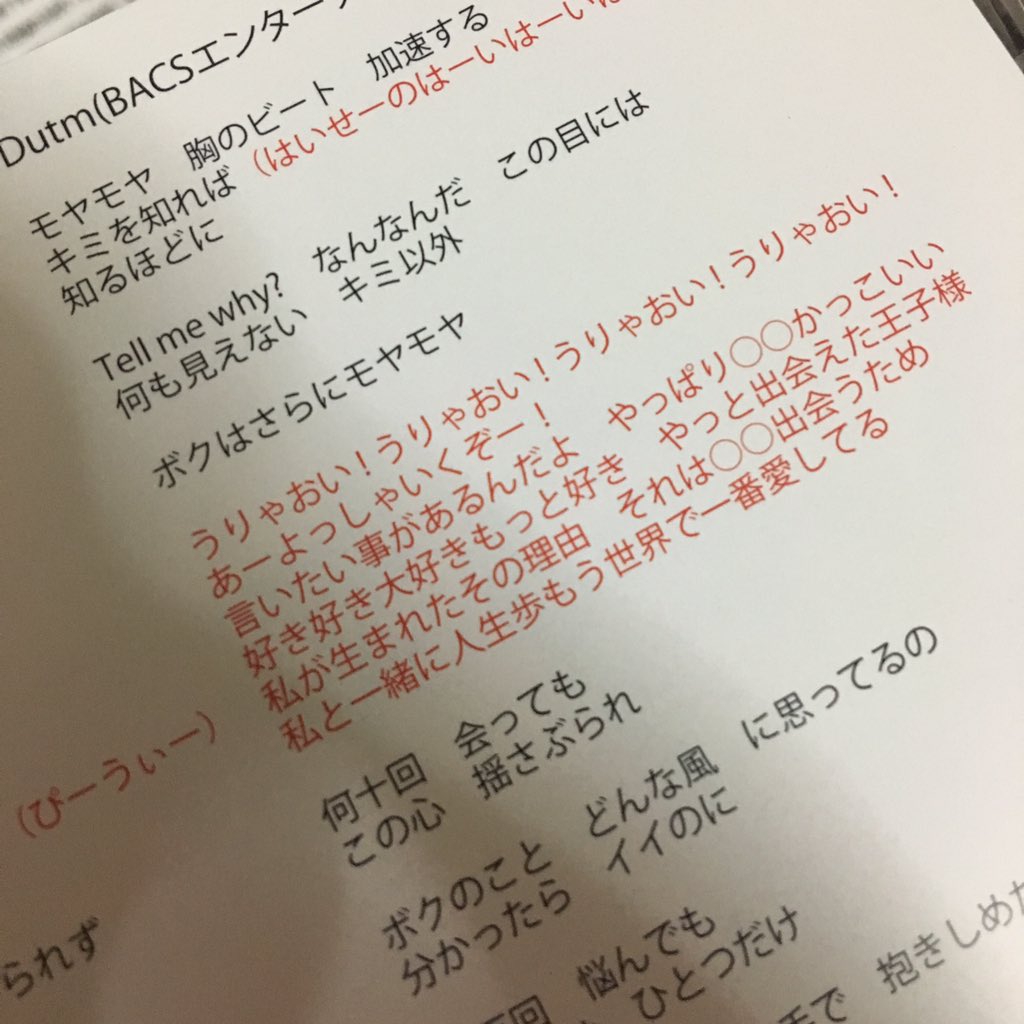 Dutm(BACSエンター
モヤモヤ 胸のビート 加速する
キミを知れば (はいせーのはーいはーいは
知るほどに
Tell me why? なんなんだ この目には
何も見えない キミ以外
ボクはさらにモヤモヤ
うりゃおい!うりゃおい!うりゃおい!うりゃおい!
あーよっしゃいくぞー!
言いたい事があるんだよ やっぱり○○かっこいい
好き好き大好きもっと好き やっと出会えた王子様
私が生まれたその理由 それは○○出会うため
私と一緒に人生歩もう世界で一番愛してる
(ぴーうぃー)
何十回 会っても
この心 揺さぶられ
ボクのこと どんな風 に思ってるの
分かったら イイのに
られず
回 悩んでも
ひとつだけ
で 抱きしめた